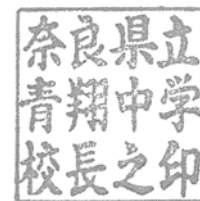 奈良県立
青翔中学
校長之印